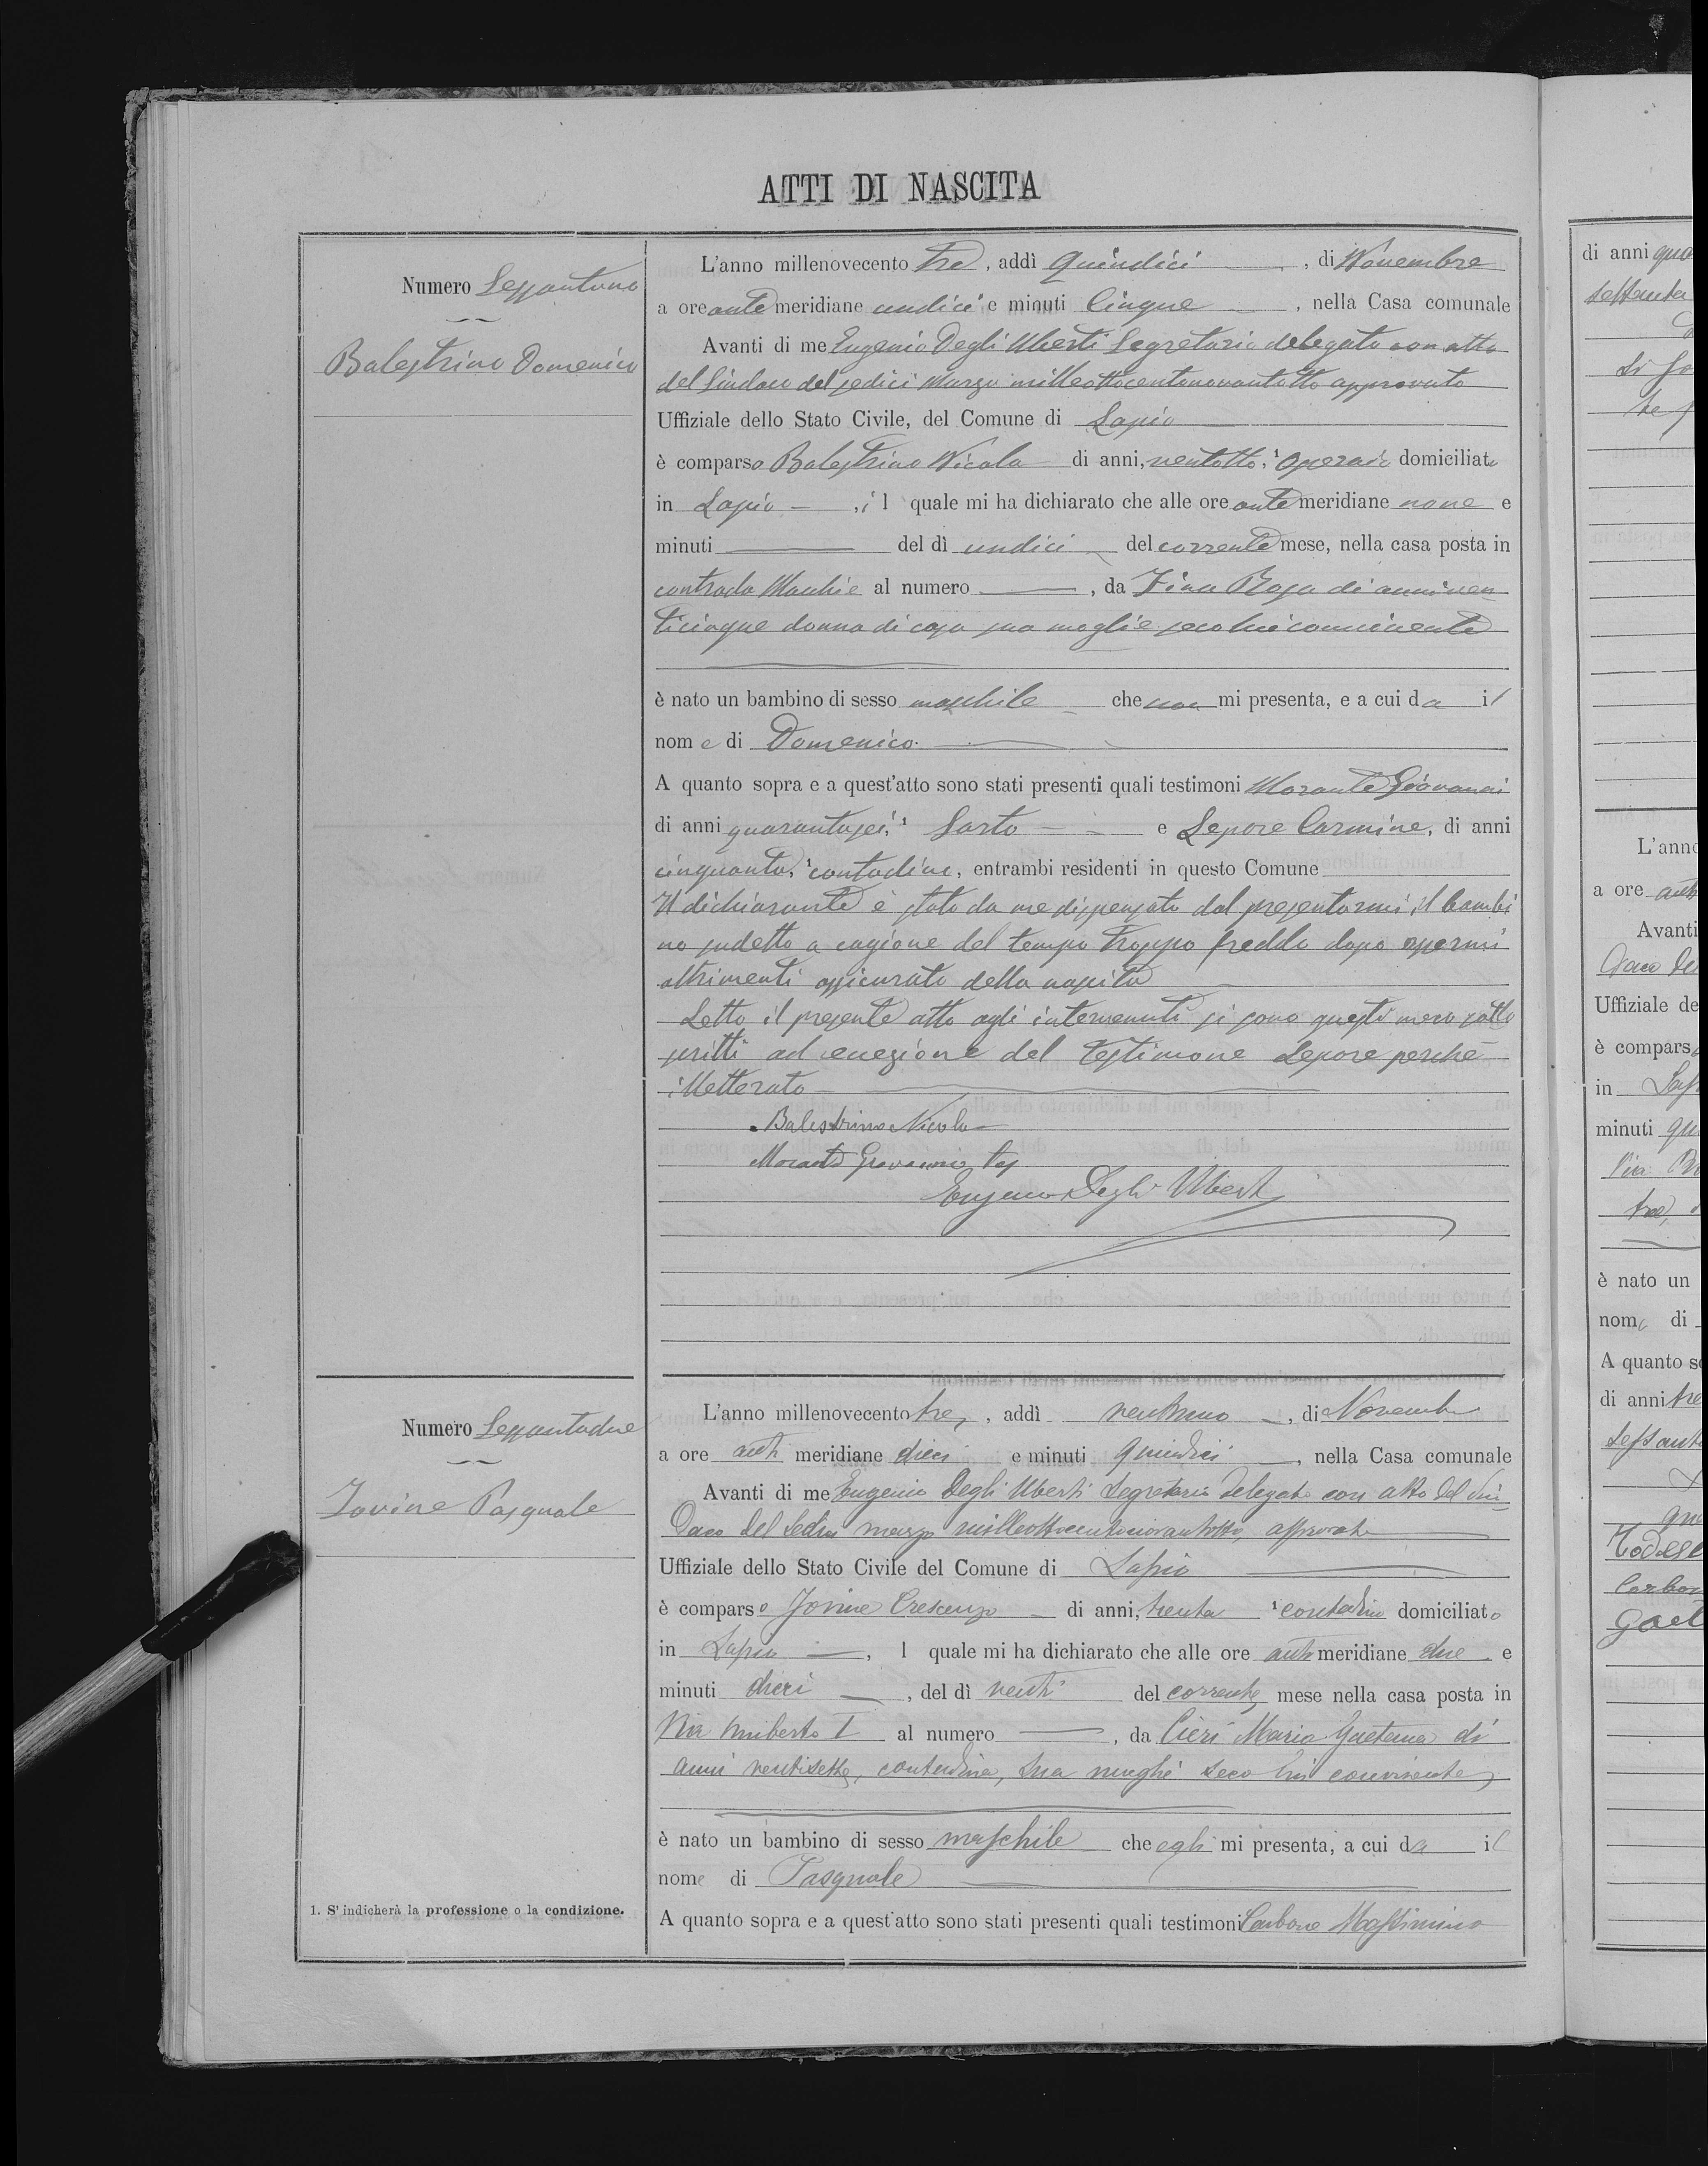 ATTI DI NASCITA
Numero Sessantuno
Balestrino Domenico
L'anno millenovecento tre, addì quindici, di Novembre
a ore antemeridiane undici e minuti Cinque, nella Casa comunale
Avanti di me Eugenio Degli Uberti Segretario delegato con atto
del Sindaco del sedici Marzo milleottocentonovantotto approvato
Uffiziale dello Stato Civile, del Comune di Lapio
è comparso Balestrino Nicola di anni, ventotto, ¹ Operaio domiciliato
in Lapio, il quale mi ha dichiarato che alle ore antemeridiane nove e
minuti del dì undici del corrente mese, nella casa posta in
contrada Macchie al numero, da Zina Rosa di anni ven
ticinque donna di casa sua moglie seco lui convivente
è nato un bambino di sesso maschile che non mi presenta, e a cui da il
nome di Domenico.
A quanto sopra e a quest'atto sono stati presenti quali testimoni Morante Giovanni
di anni quarantasei, ¹ Sarto e Lepore Carmine, di anni
cinquanta, ¹ contadino, entrambi residenti in questo Comune
Il dichiarante è stato da me dispensato dal presentarmi il bambi
no sudetto a cagione del tempo troppo freddo dopo essermi
altrimenti assicurato della nascita
Letto il presente atto agli intervenuti si sono questi meco sotto
scritti ad eccezione del testimone Lepore perchè
illetterato
Balestrino Nicola
Morante Giovanni tes
Eugenio Degli Uberti
Numero Sessantadue
Iovine Pasquale
L'anno millenovecento tre, addì ventuno, di Novembre
a ore anti meridiane dieci e minuti quindici, nella Casa comunale
Avanti di me Eugenio Degli Uberti Segretario delegato con atto del Sin-
daco del sedici marzo milleottocentonovantotto, approvato
Uffiziale dello Stato Civile del Comune di Lapio
è comparso Iovine Crescenzo di anni, trenta ¹ contadino domiciliato
in Lapio, l quale mi ha dichiarato che alle ore anti meridiane due e
minuti dieci, del dì venti del corrente mese nella casa posta in
Via Umberto I al numero, da Cieri Maria Gaetana di
anni ventisette, contadina, sua moglie seco lui convivente
è nato un bambino di sesso maschile che egli mi presenta, a cui da il
nome di Pasquale
A quanto sopra e a quest'atto sono stati presenti quali testimoni Carbone Massimino
1. S'indicherà la professione o la condizione.
di anni
L'anno
a ore anti
Avanti
Uffiziale de
è comparso
in
minuti
è nato un
nome di
A quanto so
di anni tre